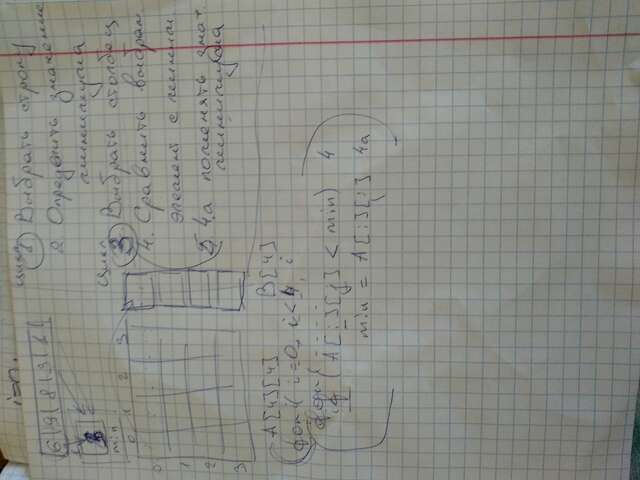 i=n.
6 9 8 3 6
min
0 1 2 3
0
1
2
3
цикл 1 Выбрать строку
2 Определить значение
минимума
цикл 3 Выбрать столбец
4. Сравнить выбран.
элемент с миним
4а поменять знач
минимума
A[4][4] B[4]
for( i=0, i<4, i
for(
if (A[i][j] < min) 4
min = A[i][j] 4а